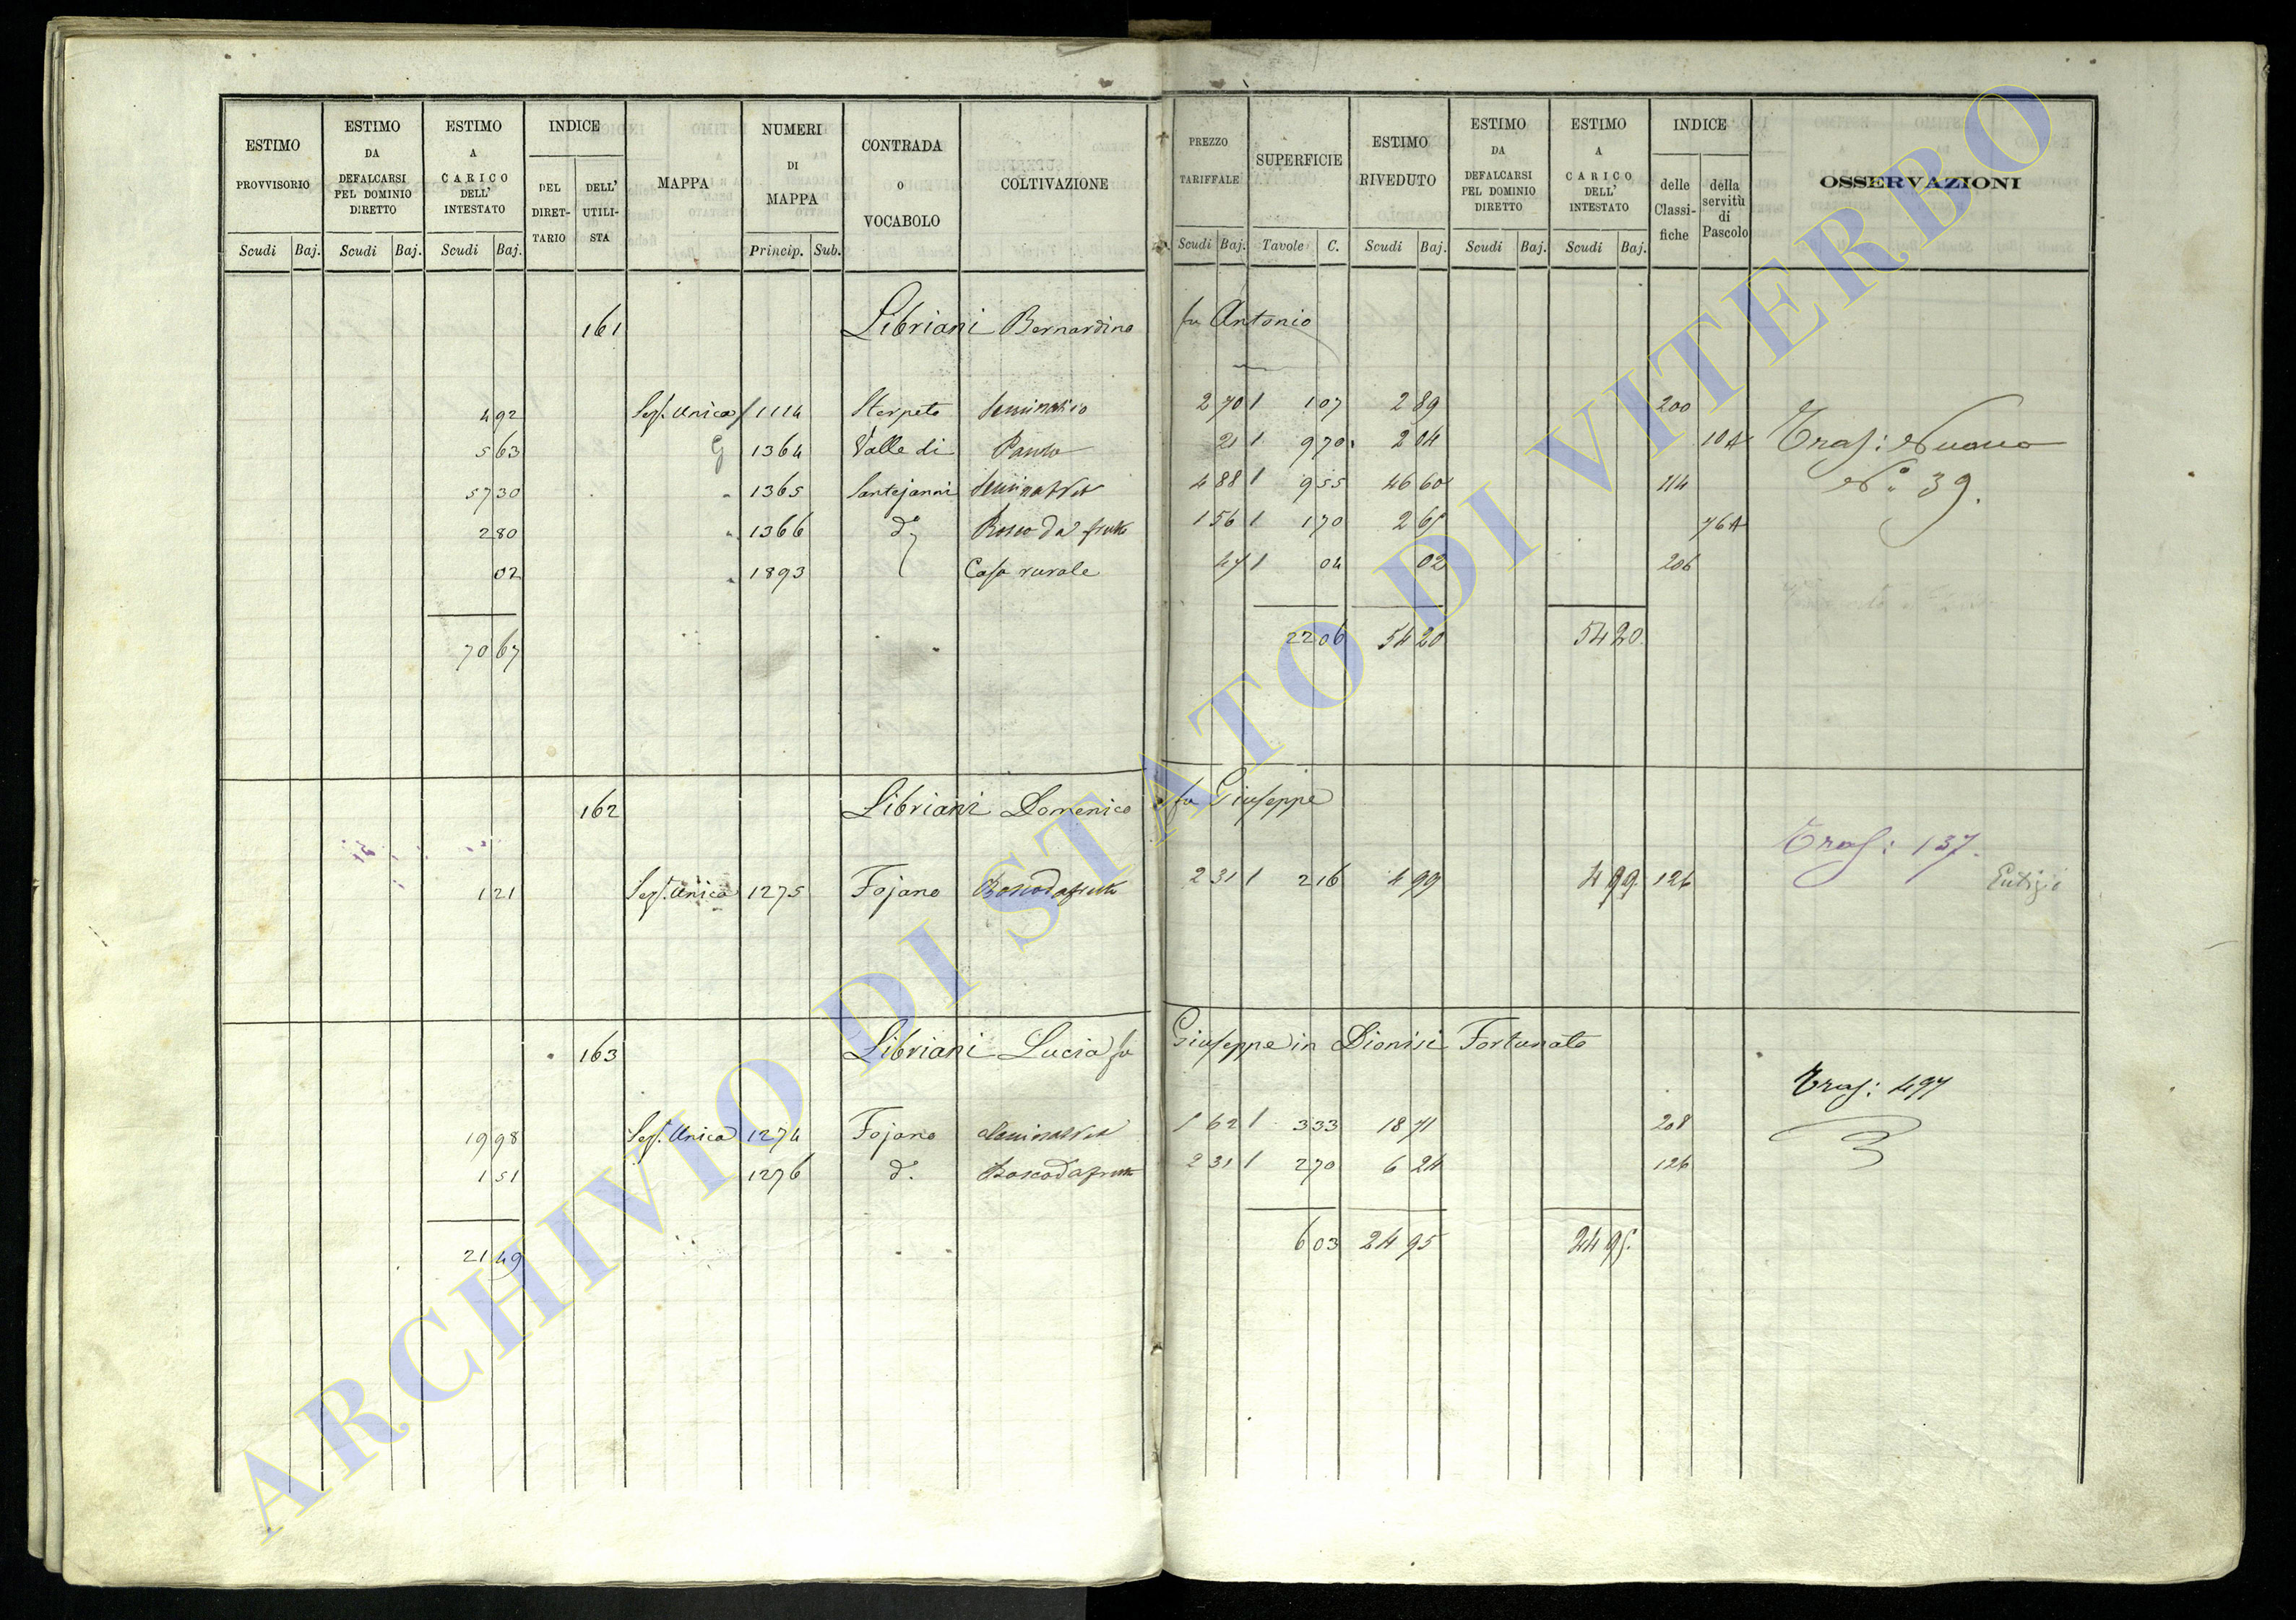 ESTIMO PROVVISORIO | ESTIMO DA DEFALCARSI PEL DOMINIO DIRETTO | ESTIMO A CARICO DELL' INTESTATO | INDICE | MAPPA | NUMERI DI MAPPA | CONTRADA O VOCABOLO | COLTIVAZIONE | PREZZO TARIFFALE | SUPERFICIE | ESTIMO RIVEDUTO | ESTIMO DA DEFALCARSI PEL DOMINIO DIRETTO | ESTIMO A CARICO DELL' INTESTATO | INDICE | OSSERVAZIONI
DEL DIRETTARIO | DELL' UTILISTA | delle Classifiche | della servitù di Pascolo
Scudi | Baj. | Scudi | Baj. | Scudi | Baj. | Princip. | Sub. | Scudi | Baj. | Tavole | C. | Scudi | Baj. | Scudi | Baj. | Scudi | Baj.
161 Libriani Bernardino fu Antonio
4 92 Sez. Unica 1114 Sterpeto Seminativo 2 70 1 07 2 89 200
5 63 1364 Valle di 21 9 70 2 04 10 A Tras: Nuovo
57 30 " 1365 Santejanni Seminat Vit 4 88 9 55 46 60 114 N.° 39.
2 80 " 1366 d.° Bosco da frutto 1 56 1 70 2 65 76 A
02 " 1893 Casa rurale 47 04 02 206
70 67 22 06 54 20 54 20
162 Libriani Domenico fu Giuseppe
Tras: 137.
1 21 Sez. Unica 1275 Fojano Bosco da frutto 2 31 2 16 4 99 4 99 126
163 Libriani Lucia fu Giuseppe in Dionisi Fortunato
Tras: 497
19 98 Sez. Unica 1274 Fojano Seminat Vit 1 62 3 33 18 71 208
1 51 1276 d.° Bosco da frutto 2 31 2 70 6 24 126
21 49 6 03 24 95 24 95
ARCHIVIO DI STATO DI VITERBO